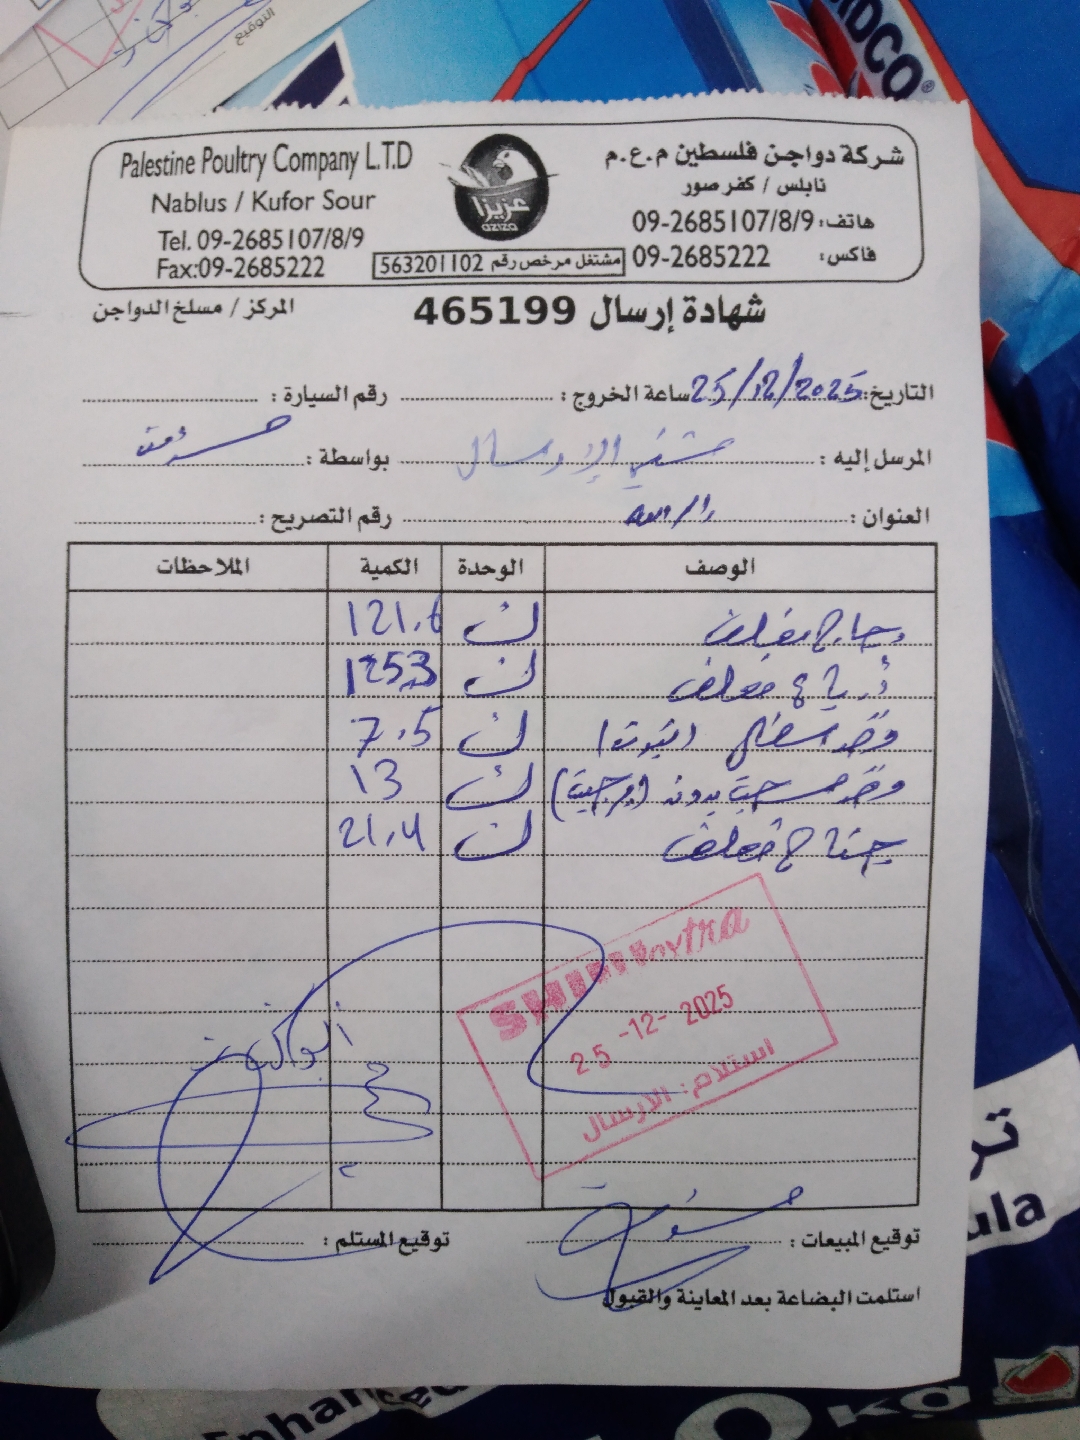 التوقيع
SIDCO®
Palestine Poultry Company L.T.D
Nablus / Kufor Sour
Tel. 09-2685107/8/9
Fax:09-2685222
عزيزا
aziza
مشتغل مرخص رقم 563201102
شركة دواجن فلسطين م.ع.م
نابلس / كفر صور
هاتف: 09-2685107/8/9
فاكس: 09-2685222
شهادة إرسال 465199
المركز / مسلخ الدواجن
التاريخ: 25/12/2025 ساعة الخروج : رقم السيارة :
المرسل إليه : شني الإرسال بواسطة :
العنوان : رام الله رقم التصريح :
الوصف الوحدة الكمية الملاحظات
دجاج مغلف ك 121.6
أرباع مغلف ك 125.3
فخد سفلي ك 7.5
فخد مسحب بدون ك 13
جناح مغلف ك 21.4
SHINI extra
25-12-2025
استلام: الارسال
توقيع المبيعات : توقيع المستلم :
استلمت البضاعة بعد المعاينة والقبول
تر
ula
Enhanced
0 KG